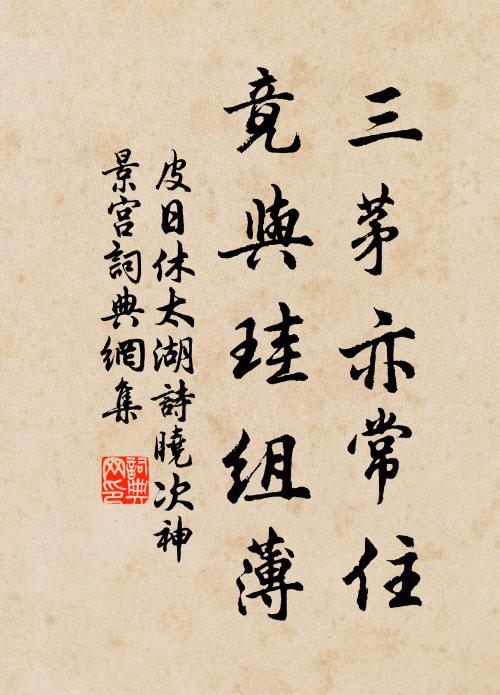 三茅亦常住
竟與珪組薄
皮日休太湖詩曉次神
景宮詞典網集
詞典
網印